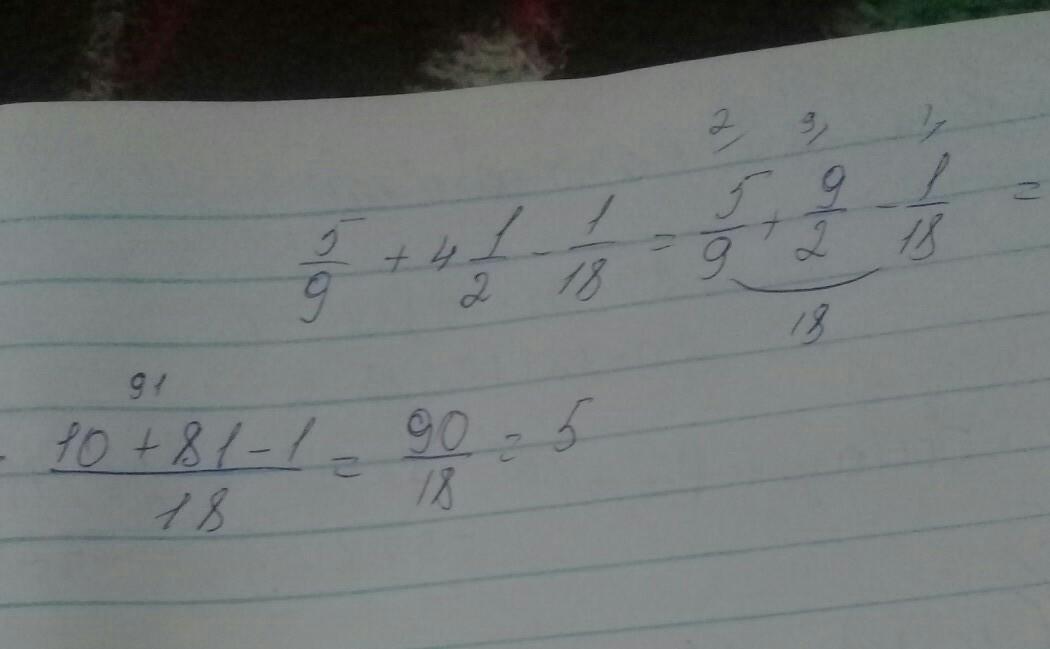 2, 9, 1,
5/9 + 4 1/2 - 1/18 = 5/9 + 9/2 - 1/18 =
18
91
(10 + 81 - 1)/18 = 90/18 = 5